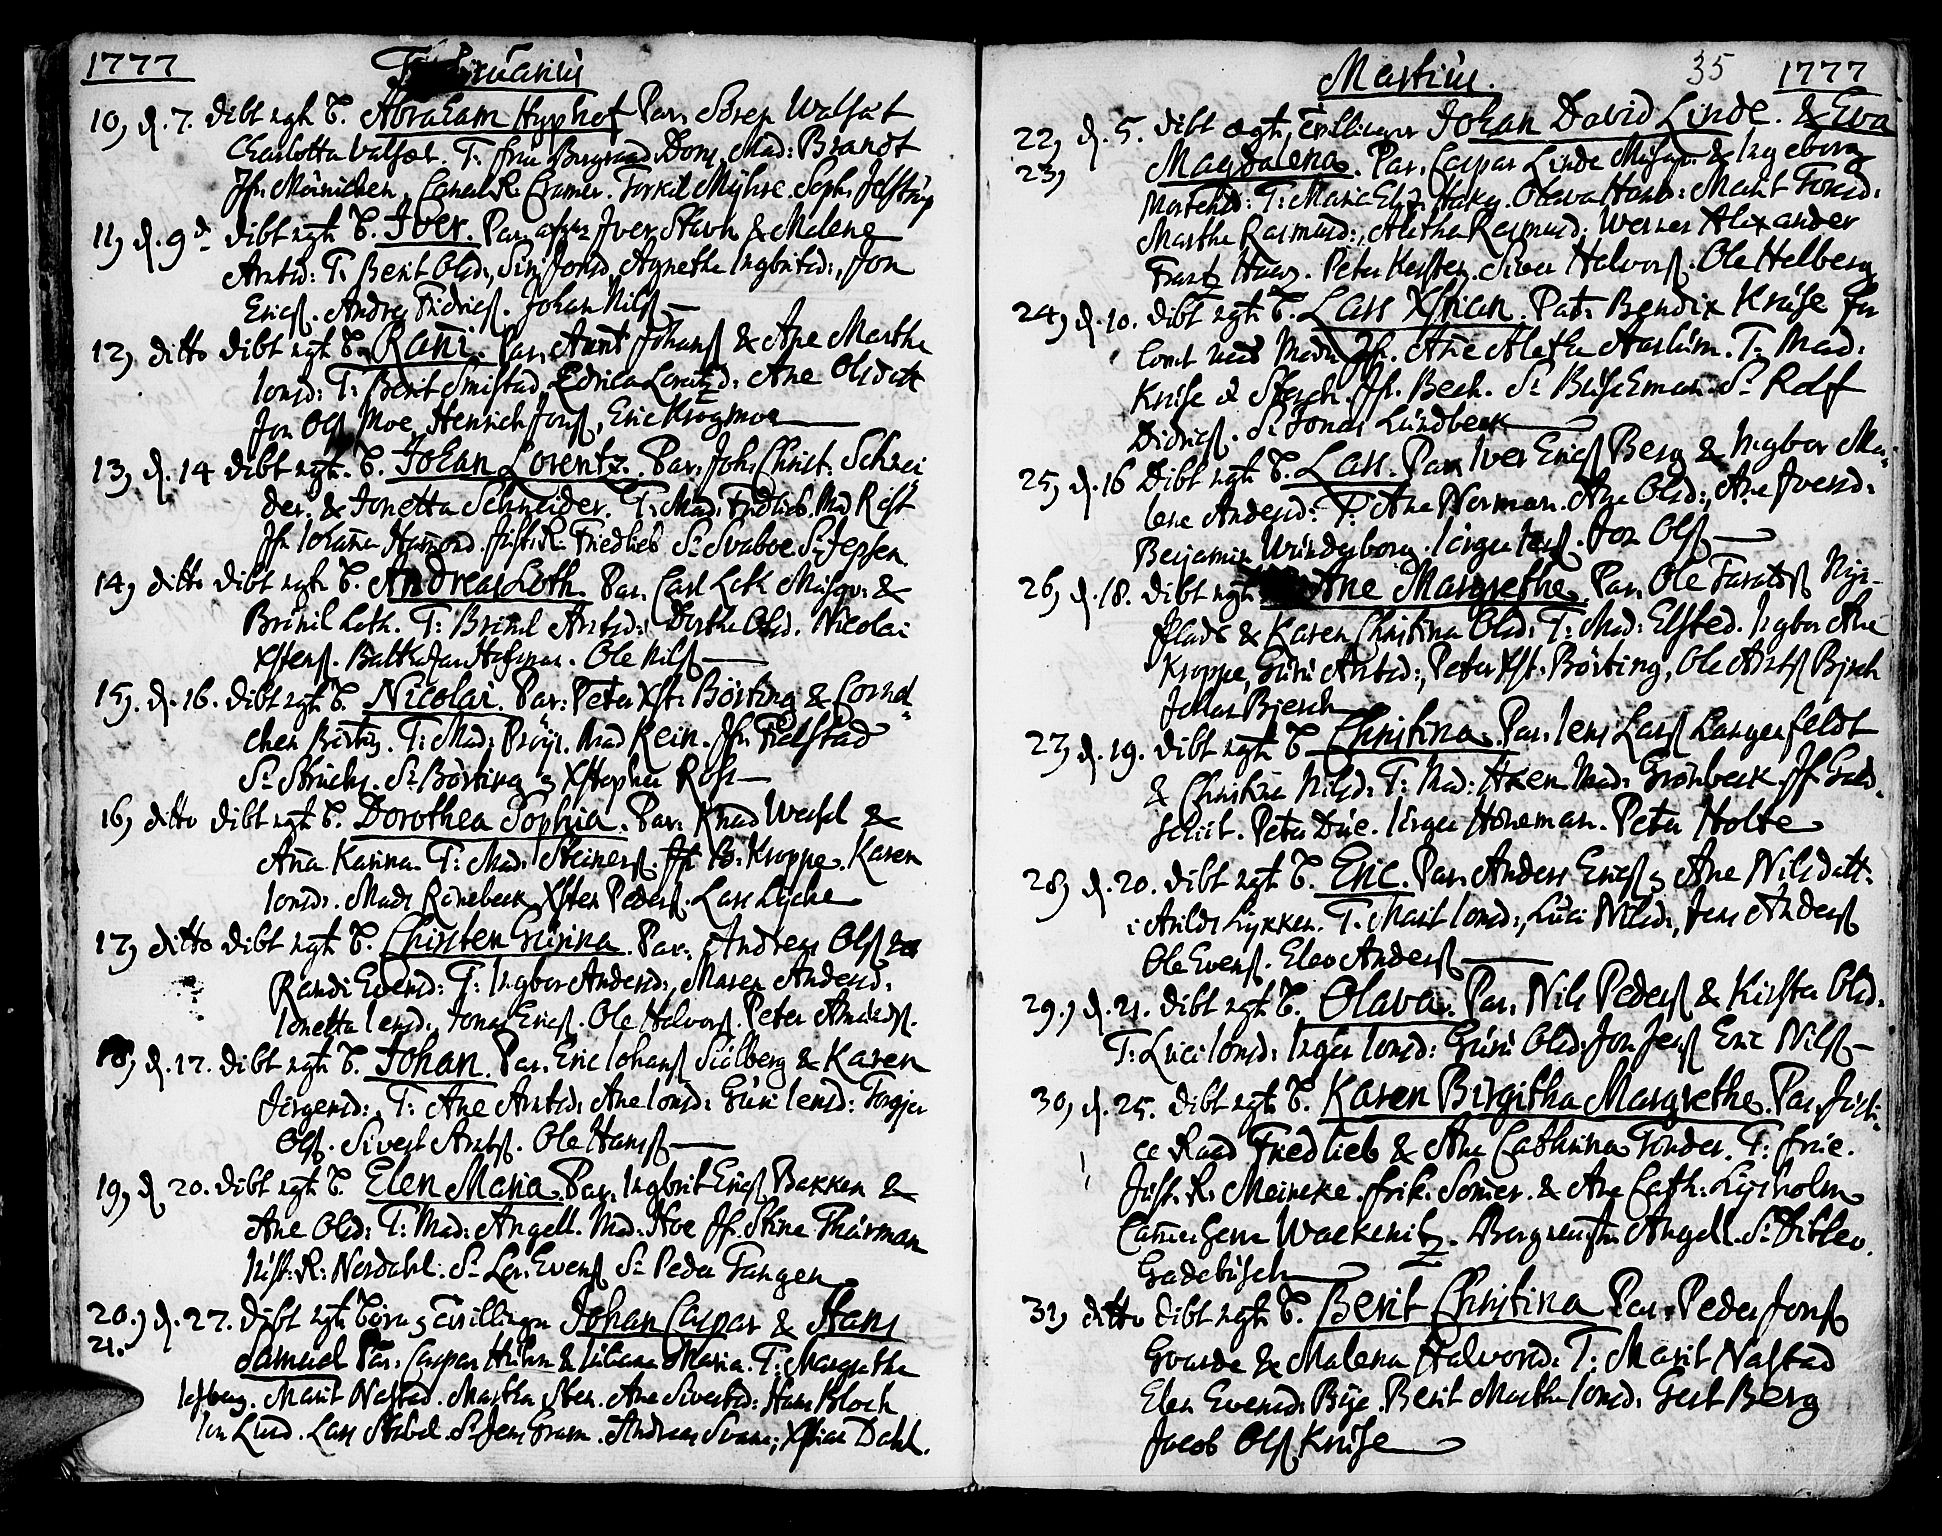 1777 Februarius
10, d. 7. dibt ægte B. Abraham Hyphof Par. Søren Walsøt
Charlotta Walsøt. T: frue Bergraad Dons, Mad: Brandt
Jfr. Mönichen, Cancel. R. Cramer. Torkil Myhre. Soph. Jelstrup
11, d. 9 d dibt ægte B. Iver. Par. Iver Stavn & Malene
Arntsd: T: Berit Olsd:, Siri Jonsd, Agnethe Ingbritsd:, Jon
Ericss. Andre Fridricss. Johan Nilss
12, ditto dibt ægte B. Rani. Par. Arnt Johanss & Ane Marthe
Jonsd: T: Berit Smistad, Edrica Lorntzd: Ane Olsdatt
Jon Olss Moe, Henrich Jonss, Eric Krogmoe
13, d. 14 dibt ægte B. Johan Lorentz. Par. Joh. Christ. Schnei
der. & Jonetta Schneider. T: Mad: Fridlieb. Md Rist
Jfr Johanna Hammond. Justi: R. Friedlieb Sr Svaboe Sr Jepsen
14, ditto dibt ægte B. Andreas Loth. Par. Carl Loth Musqv: &
Brinil Loth. T: Brinil Arntsd:, Dorthe Olsd. Nicolai
Xstenss. Balthasar Hofman. Ole Nilss
15, d. 16. dibt ægte B. Nicolai. Par: Peter Xst: Börting & Cornel
chen Börting. T: Mad: Pröys. Mad Rein. Jfr. Fielstad
Sr Struchs. Sr Börting & Xstopher Rosh
16, ditto dibt ægte B. Dorothea Sophia. Par. Knud Wessel &
Ana Karina. T: Mad: Steinerss. Jfr Kroppe. Karen
Jonsd:. Mads Rönebeck, Xsten Pederss. Lars Lycke
17, ditto dibt ægte B. Christen Gurina. Par. Andreas Olss &
Randi Evensd: T: Ingbor Andersd:, Maren Andersd:
Jonetta Jensd:, Jonas Ericss. Ole Halvorss. Peter Amundss.
18, d. 17. dibt ægte B. Johan. Par. Eric Johanss Siölberg & Karen
Jörgensd:, T: Ane Arntsd: Ane Jonsd: Guri Jensd: Torger
Olss. Sivert Arntss. Ole Hanss
19, d 20. dibt ægte B. Elen Maria. Par. Ingbrit Ericss Bakken &
Ane Olsd: T: Mad: Angell. Mad: Hoe Jfr. Stine Thurman
Just: R: Nordahl: Sr Lor. Evenss Sr Peder Tangen
20., d. 27. dibt ægte Börn & Tvillinger Johan Caspar & Hans
21. Samuel Par. Caspar Huhn & Juliana Maria. T: Margrethe
Marit Nastad. Martha Sten. Ane Sivertsd: Hans Bloch
Jon Lund. Lars Strbel. Sr Jens Gram. Andreas Svane, Xstian Dahl.
Martius. 35 1777
22, d. 5. dibt ægte, Tvillinger Johan David Linde. & Eva
23, Magdalena. Par. Caspar Linde Musqv & Ingeborg
Mortensd: T: Maria Elis. Hako. Olava Hans: Marit Tomsd:
Marthe Rasmusd:, Aletha Rasmusd: Werner Alexander
Frantz Haus. Peter Kersten. Siver Halvorss. Ole Helberg
24, d. 10. dibt ægte B. Lars Xstian. Pat: Bendix Kruse for
lovet med Madm Jfr. Ane Aletha Aarlum. T: Mad:
Kruse & Storch. Jfr. Bech. Sr Buseman. Sr Rolf
Didricss. Sr Jonas Lundbeck
25, d. 16 dibt ægte B. Lars. Par. Iver Ericss Berg & Ingbor Ma-
lene Andersd: T: Ane Norman. Ane Olsd:, Ane Iversd:
Benjamin Wunderborg. Jörgen Jenss. Jon Olss
26, d. 18. dibt ægte Ane Margrethe. Par. Ole Taraldss Nye-
Plads & Karen Christina Olsd: T: Mad: Elsted. Ingbor Ane
Kroppe, Guri Arntsd:, Peter Xst: Börting, Ole Arntss Bjerch
Johan Bjerch
27, d. 19. dibt ægte B. Christina. Par. Jens Larss Langenfeldt
& Christina Nilsd: T: Mad: Haen Mad: Grönbeck Jfr Guld-
schut. Peter Due. Jörgen Honeman. Peter Holte
28, d. 20. dibt ægte B. Eric. Par. Anders Ericss & Ane Nilsdatt:
i Arilds Lykken. T: Marit Jonsd:, Luci Nilsd:, Jens Anderss
Ole Evenss. Eleo Anderss
29., d. 21. dibt ægte B. Olava. Par. Nils Pederss & Kirsta Olsd.
T: Luci Jonsd: Inger Jonsd: Guri Olsd: Jon Jenss Eric Nilss
30, d. 25. dibt ægte B. Karen Birgitha Margrethe. Par. Justi-
ce Raad Friedlieb & Ane Cathrina Tonder. T: frue.
Just. R. Meincke. frök. Somer. & Ane Cath: Lysholm
Camerherre Wackenitz. Bergmester Angell. Sr Ditlev.
Gadebusch
31, ditto dibt ægte B. Berit Christina Par. Peder Jonss
Gvarde & Malena Halvorsd: T: Marit Nastad
Elen Evensd: Bye. Berit Marthe Jonsd: Gert Berg
Jacob Olss Kruse